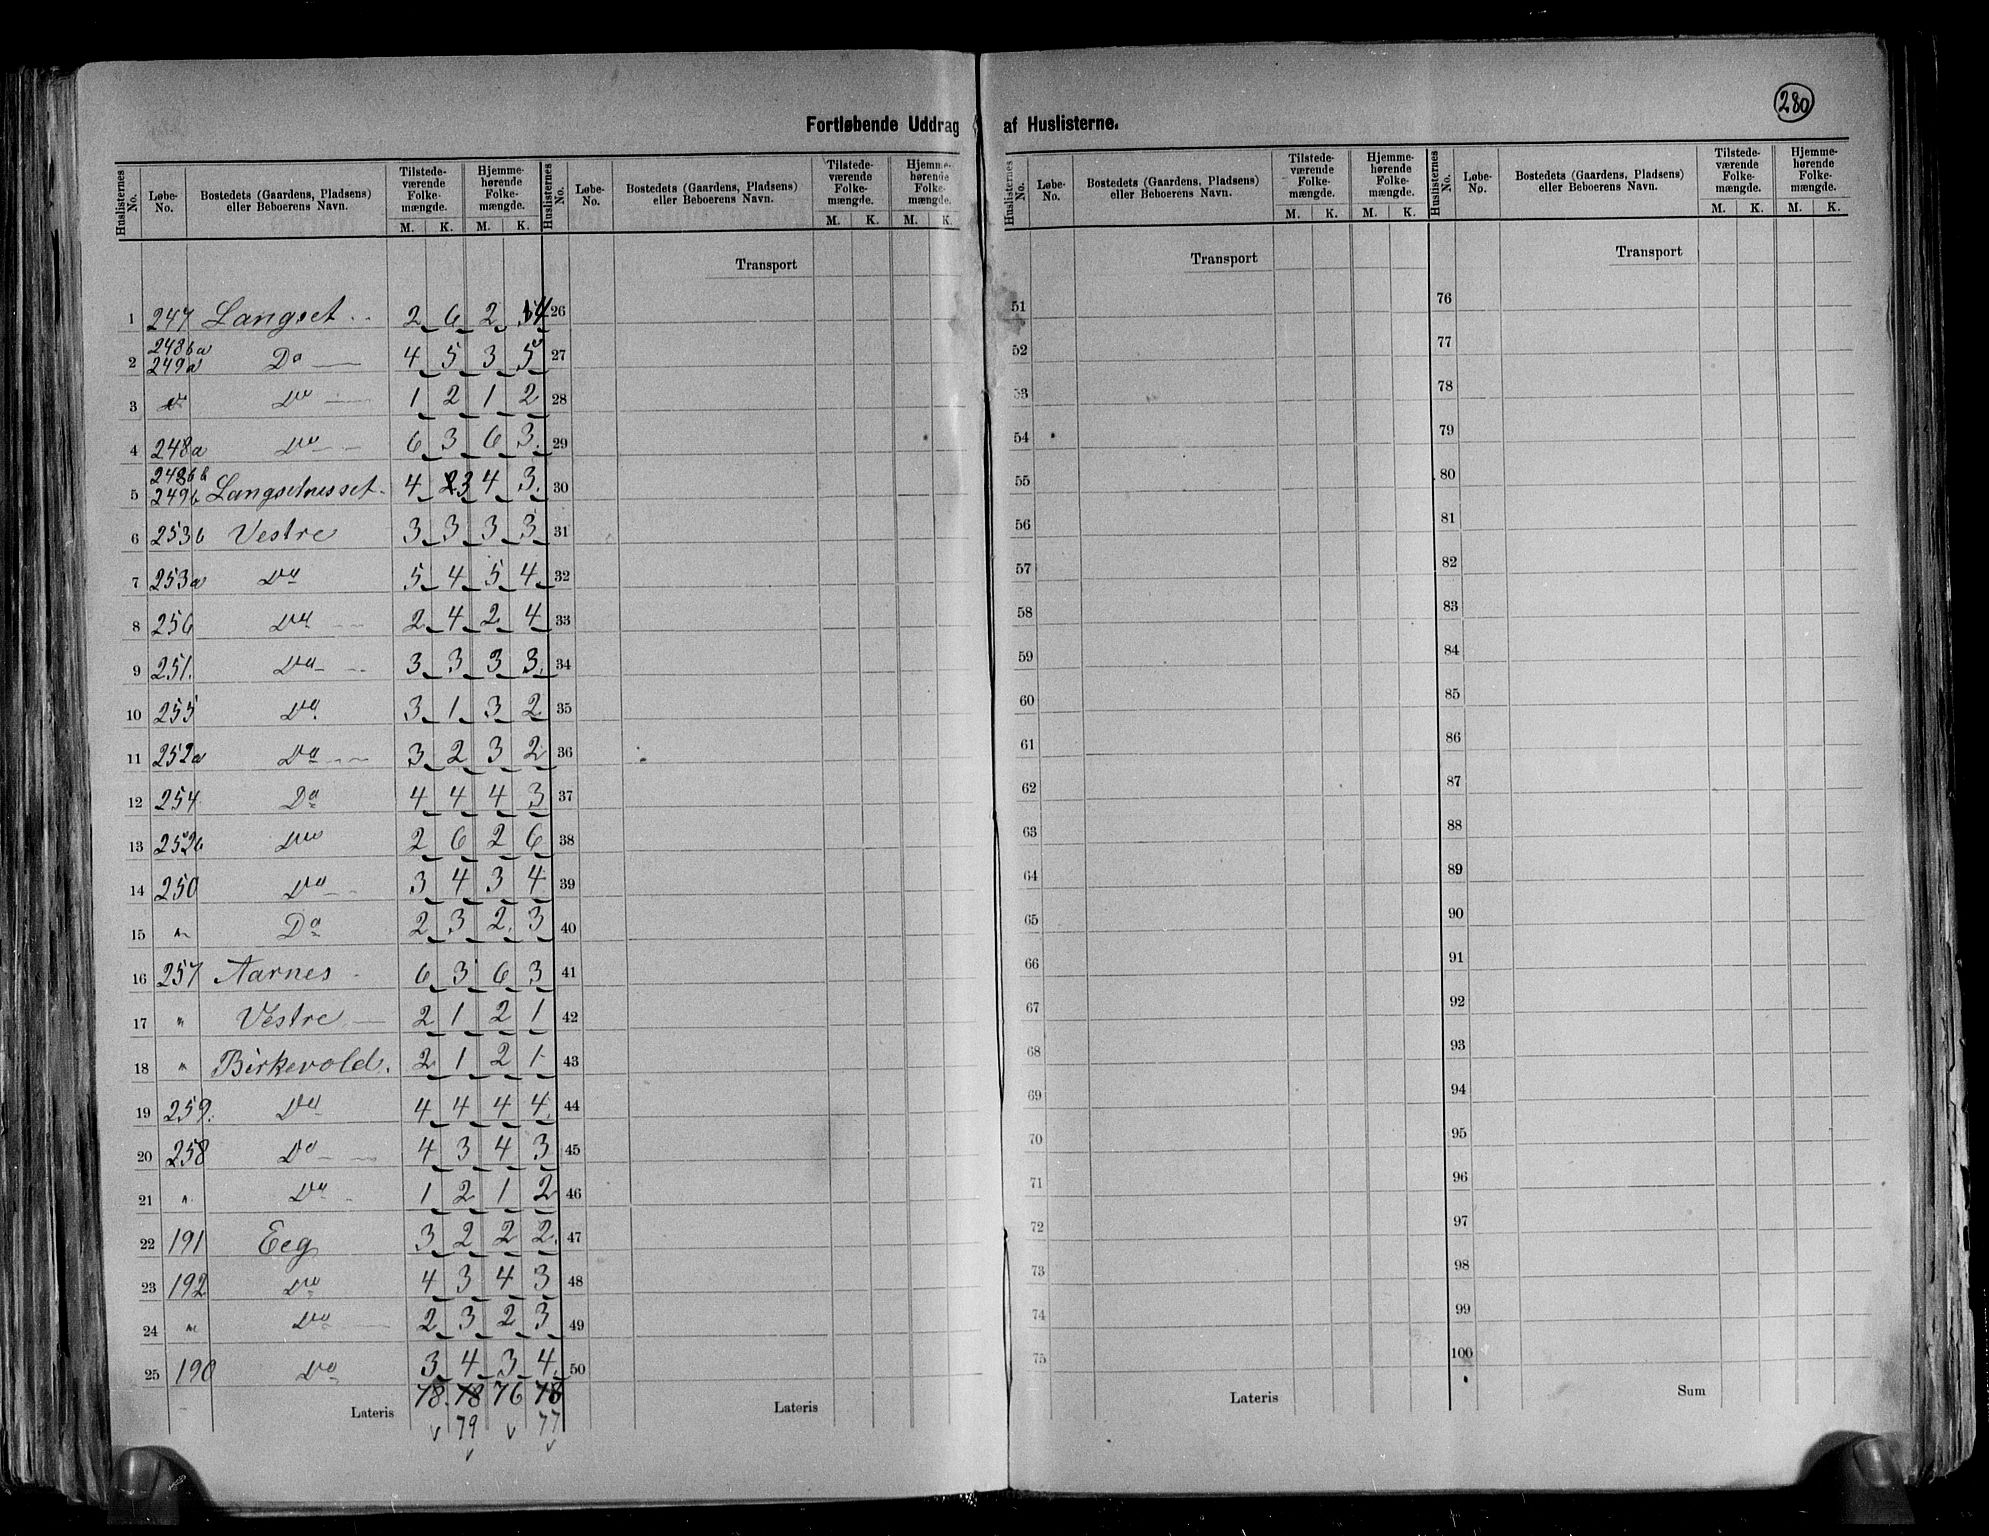 280
Fortløbende Uddrag af Huslisterne.
Huslisternes No. | Løbe-No. | Bostedets (Gaardens, Pladsens) eller Beboerens Navn. | Tilstedeværende Folkemængde. M. K. | Hjemmehørende Folkemængde. M. K.
Huslisternes No. | Løbe-No. | Bostedets (Gaardens, Pladsens) eller Beboerens Navn. | Tilstedeværende Folkemængde. M. K. | Hjemmehørende Folkemængde. M. K.
Huslisternes No. | Løbe-No. | Bostedets (Gaardens, Pladsens) eller Beboerens Navn. | Tilstedeværende Folkemængde. M. K. | Hjemmehørende Folkemængde. M. K.
Huslisternes No. | Løbe-No. | Bostedets (Gaardens, Pladsens) eller Beboerens Navn. | Tilstedeværende Folkemængde. M. K. | Hjemmehørende Folkemængde. M. K.
Transport Transport Transport
1 247 Langset 2 6 2 4 26 51 76
2 248ba 249a Do 4 5 3 5 27 52 77
3 Do 1 2 1 2 28 53 78
4 248a Do 6 3 6 3 29 54 79
5 248bb 249b Langsethusset 4 3 4 3 30 55 80
6 253b Vestre 3 3 3 3 31 56 81
7 253a Do 5 4 5 4 32 57 82
8 256 Do 2 4 2 4 33 58 83
9 251. Do 3 3 3 3 34 59 84
10 255 Do 3 1 3 2 35 60 85
11 252a Do 3 2 3 2 36 61 86
12 254 Do 4 4 4 3 37 62 87
13 252b Do 2 6 2 6 38 63 88
14 250 Do 3 4 3 4 39 64 89
15 " Do 2 3 2 3 40 65 90
16 257 Aarnes 6 3 6 3 41 66 91
17 " Vestre 2 1 2 1 42 67 92
18 " Birkevold. 2 1 2 1 43 68 93
19 259. Do 4 4 4 4 44 69 94
20 258 Do 4 3 4 3 45 70 95
21 " Do 1 2 1 2 46 71 96
22 191 Eeg 3 2 2 2 47 72 97
23 192 Do 4 3 4 3 48 73 98
24 " Do 2 3 2 3 49 74 99
25 190 Do 3 4 3 4 50 75 100
Lateris 78 78 76 78 Lateris Lateris Sum
79 77